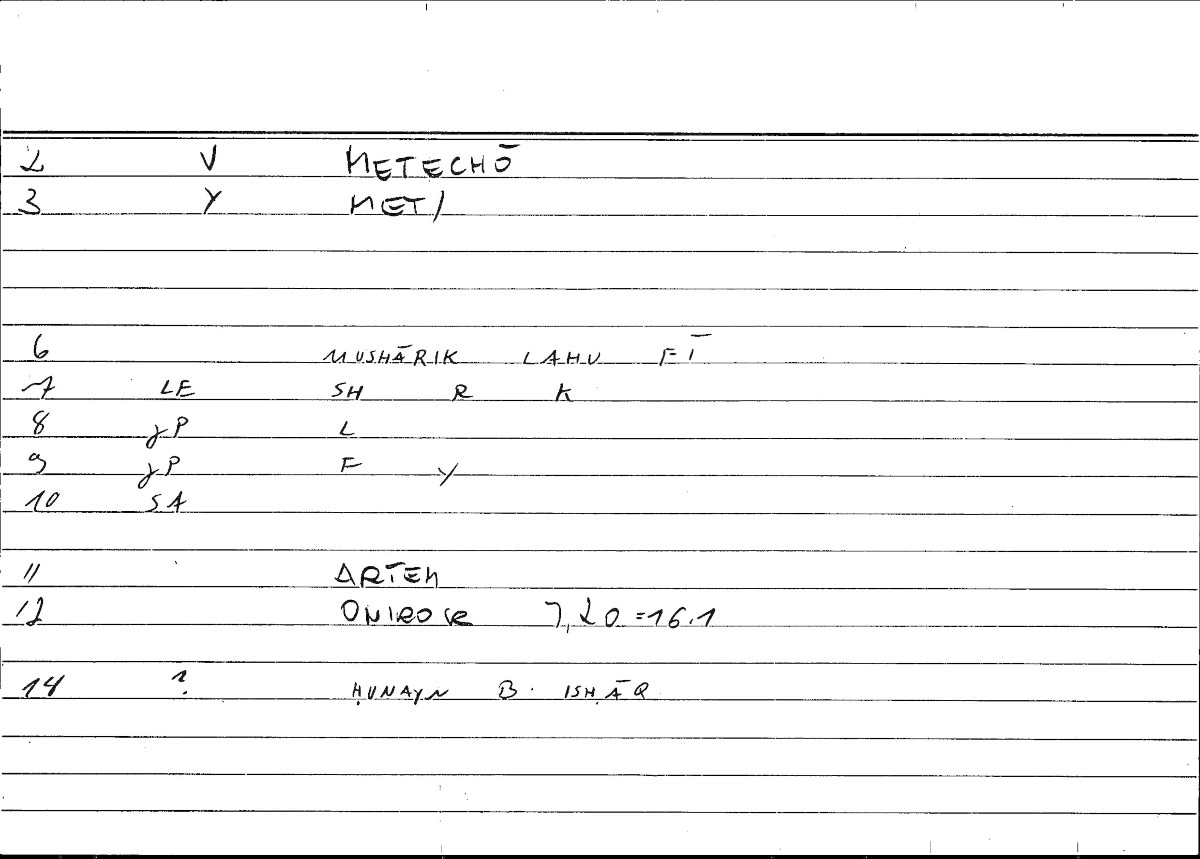 2 V METECHŌ
3 Y MET/
6 MUSHĀRIK LAHU FĪ
7 LE SH R K
8 JP L
9 JP F Y
10 SA
11 ARTEM
12 ONIROCR 7,20=16.1
14 ? ḤUNAYN B. ISḤĀQ